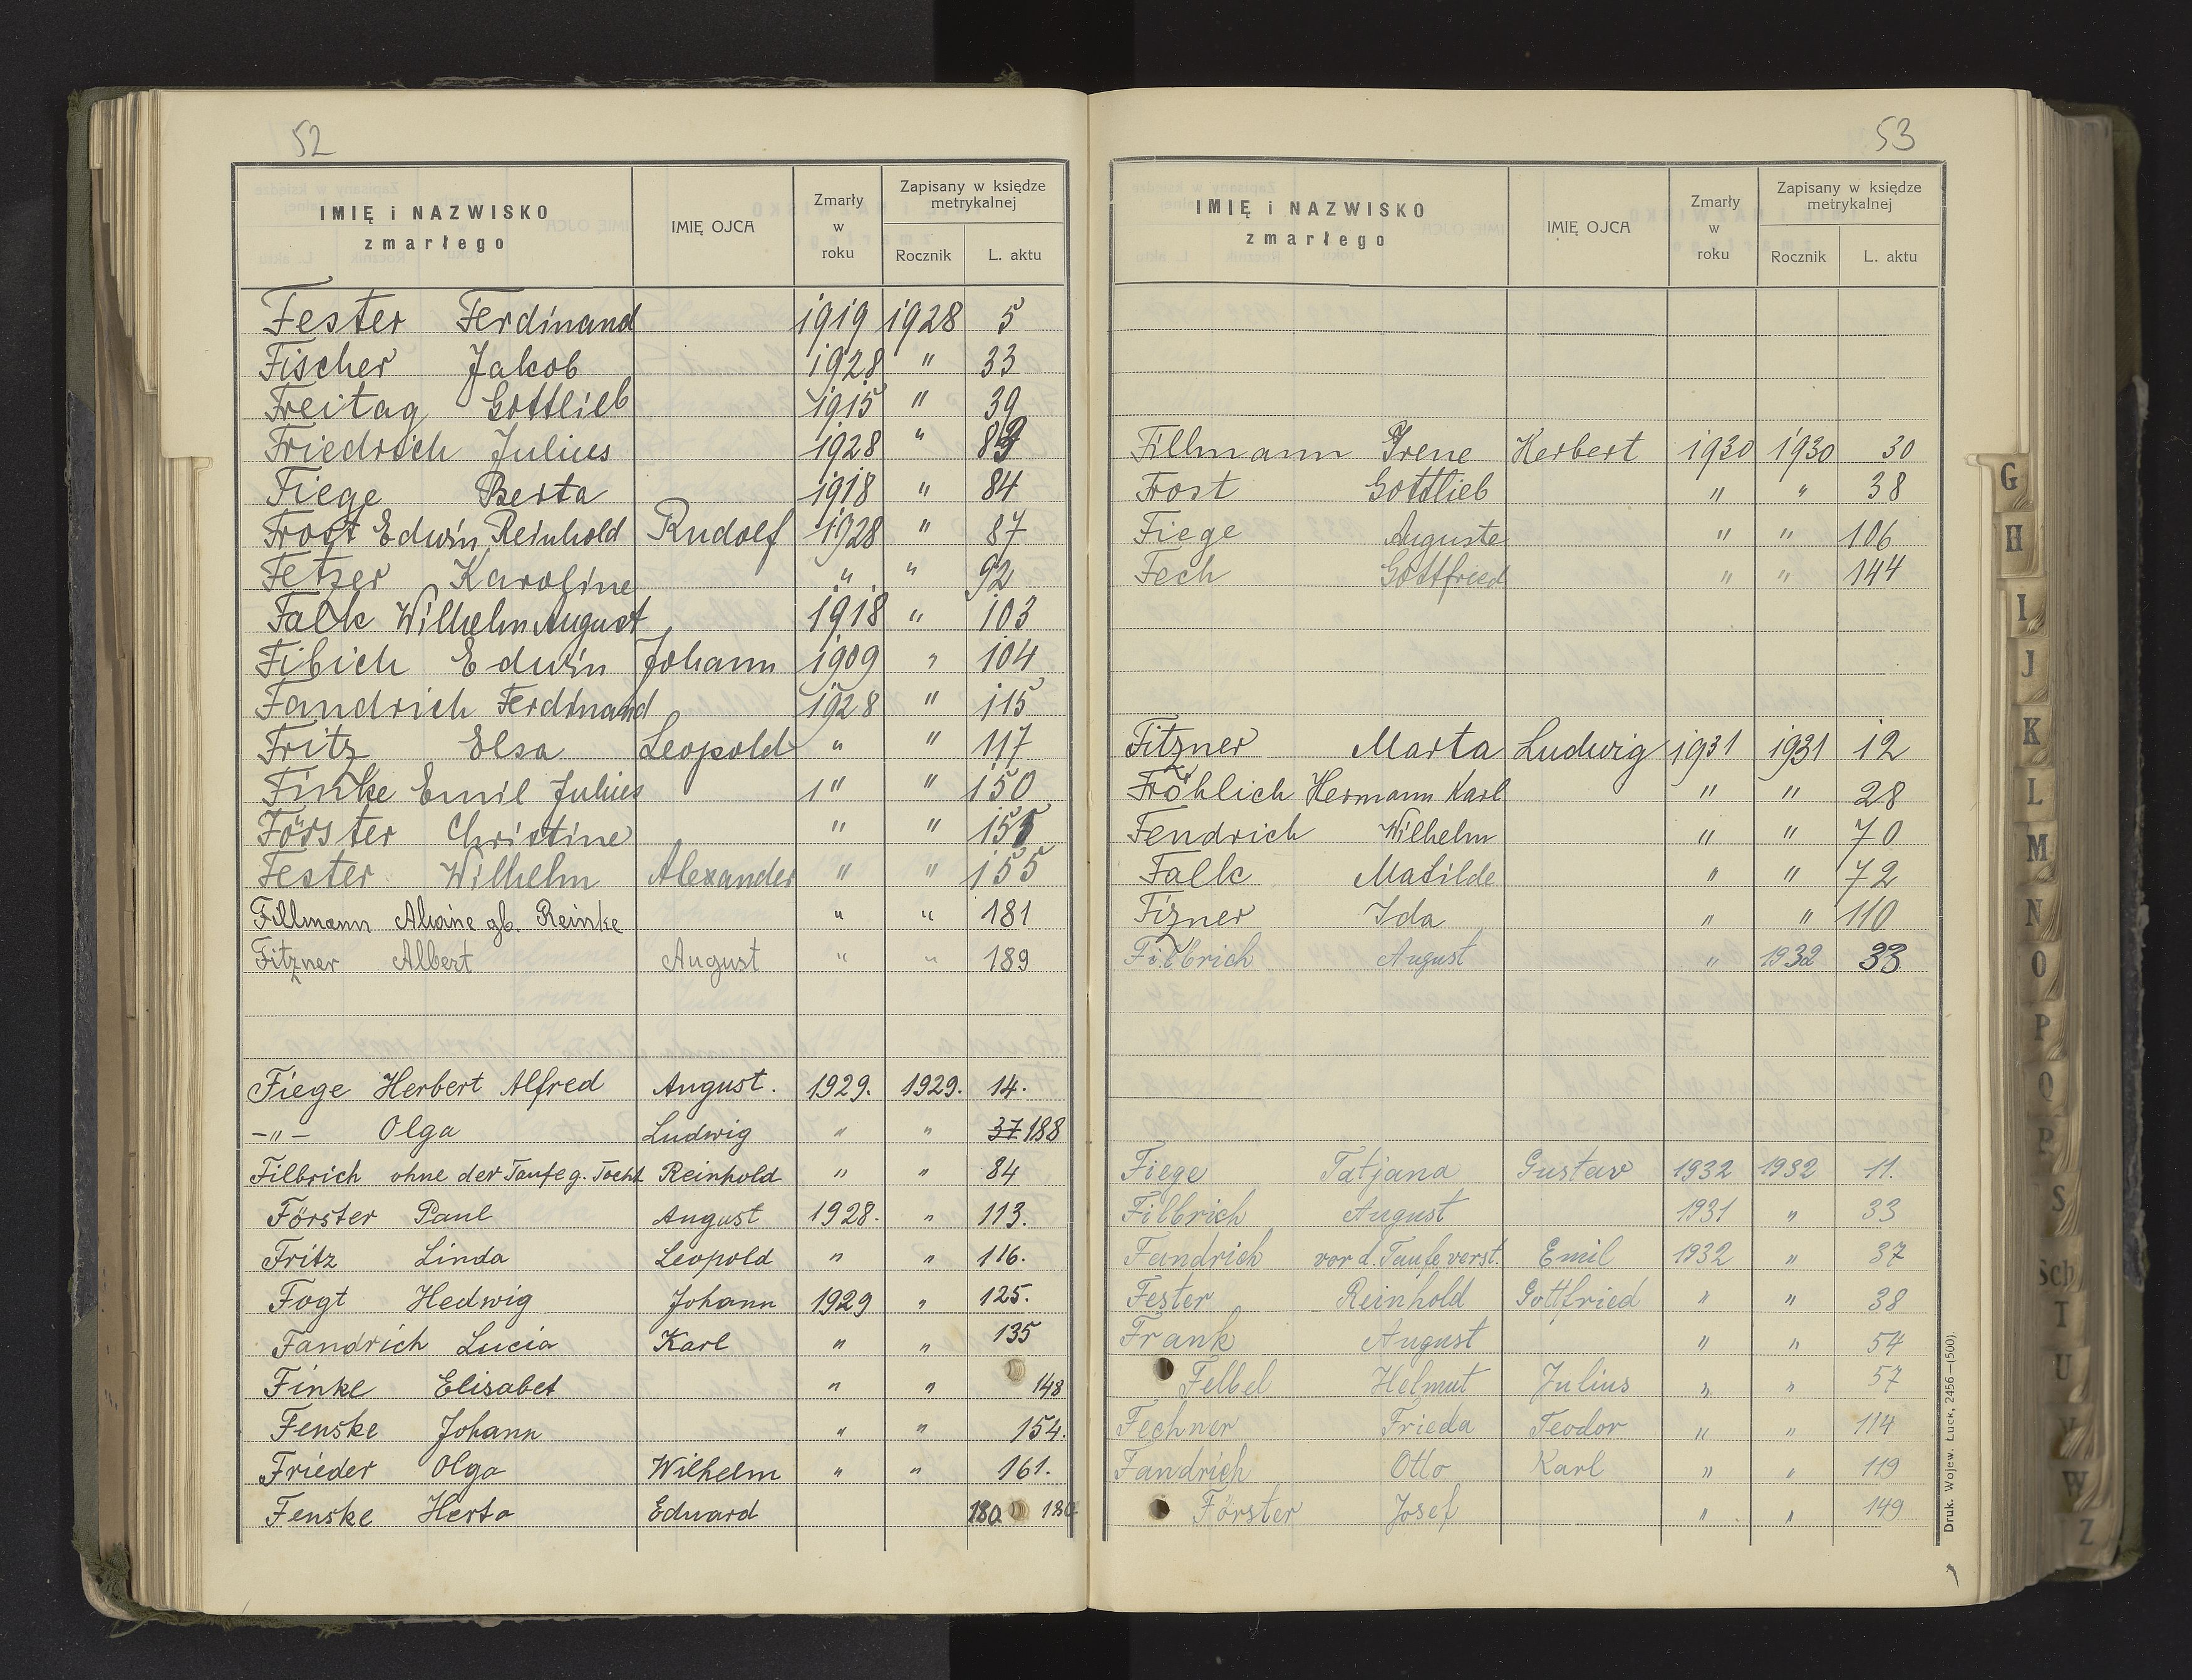 52
IMIĘ i NAZWISKO zmarłego IMIĘ OJCA Zmarły w roku Zapisany w księdze metrykalnej Rocznik L. aktu
Fester Ferdinand 1919 1928 5
Fischer Jakob 1928 " 33
Freitag Gottlieb 1915 " 39
Friedrich Julius 1928 "
Fiege Berta 1918 " 84
Frost Edwin Reinhold Rudolf 1928 " 87
Fetzer Karoline " " 92
Falk Wilhelm August 1918 " 103
Fibich Edwin Johann 1909 " 104
Fandrich Ferdinand 1928 " 115
Fritz Elsa Leopold " " 117
Finke Emil Julius 1" " 150
Förster Christine " "
Fester Wilhelm Alexander " " 155
Fillmann Alwine gb. Reinke " " 181
Fitzner Albert August " " 189
Fiege Herbert Alfred August. 1929. 1929. 14.
-"- Olga Ludwig " " 37 188
Filbrich ohne der Taufe g. Tocht Reinhold " " 84
Förster Paul August 1928. " 113.
Fritz Linda Leopold " " 116.
Fogt Hedwig Johann 1929 " 125.
Fandrich Lucia Karl " " 135
Finke Elisabet " " 148
Fenske Johann " " 154.
Frieder Olga Wilhelm " " 161.
Fenske Herta Eduard 180 180
53
IMIĘ i NAZWISKO zmarłego IMIĘ OJCA Zmarły w roku Zapisany w księdze metrykalnej Rocznik L. aktu
Fillmann Irene Herbert 1930 1930 30
Frost Gottlieb " " 38
Fiege Auguste " " 106
Fech Gottfried " " 144
Fitzner Marta Ludwig 1931 1931 12
Fröhlich Hermann Karl " " 28
Fendrich Wilhelm " " 70
Falk Matilde " " 72
Fizner Ida " " 110
Filbrich August " 1932 33
Fiege Tatjana Gustav 1932 1932 11.
Filbrich August 1931 " 33
Fandrich vor d. Taufe verst. Emil 1932 " 37
Fester Reinhold Gottfried " " 38
Frank August " " 54
Felbel Helmut Julius " " 57
Fechner Frieda Teodor " " 114
Fandrich Otto Karl " " 119
Förster Josef " " 149
Druk. Wojew. Łuck, 2456—(500).
G
H
I
J
K
L
M
N
O
P
Q
R
S
Sch
T
U
V
W
Z